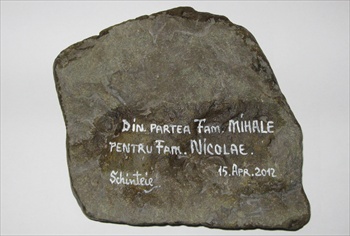 Din partea Fam. Mihale
pentru Fam. Nicolae.
Schinteie! 15.Apr.2012